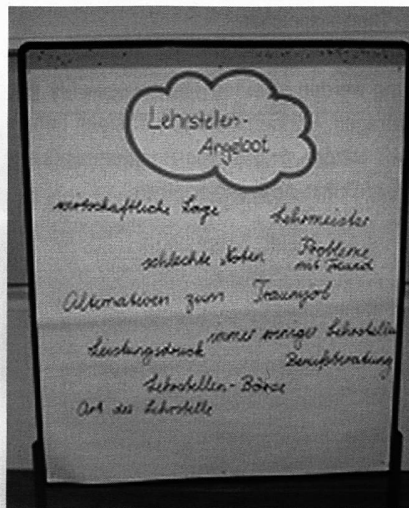 Lehrstellen-
Angebot
wirtschaftliche Lage
Lehrmeister
schlechte Noten
Probleme
mit Freund
Alternativen zum Traumjob
immer weniger Lehrstellen
Leistungsdruck
Berufsberatung
Lehrstellen-Börse
Art der Lehrstelle